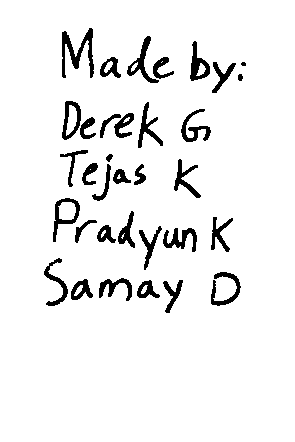 Made by:
Derek G
Tejas K
Pradyun K
Samay D